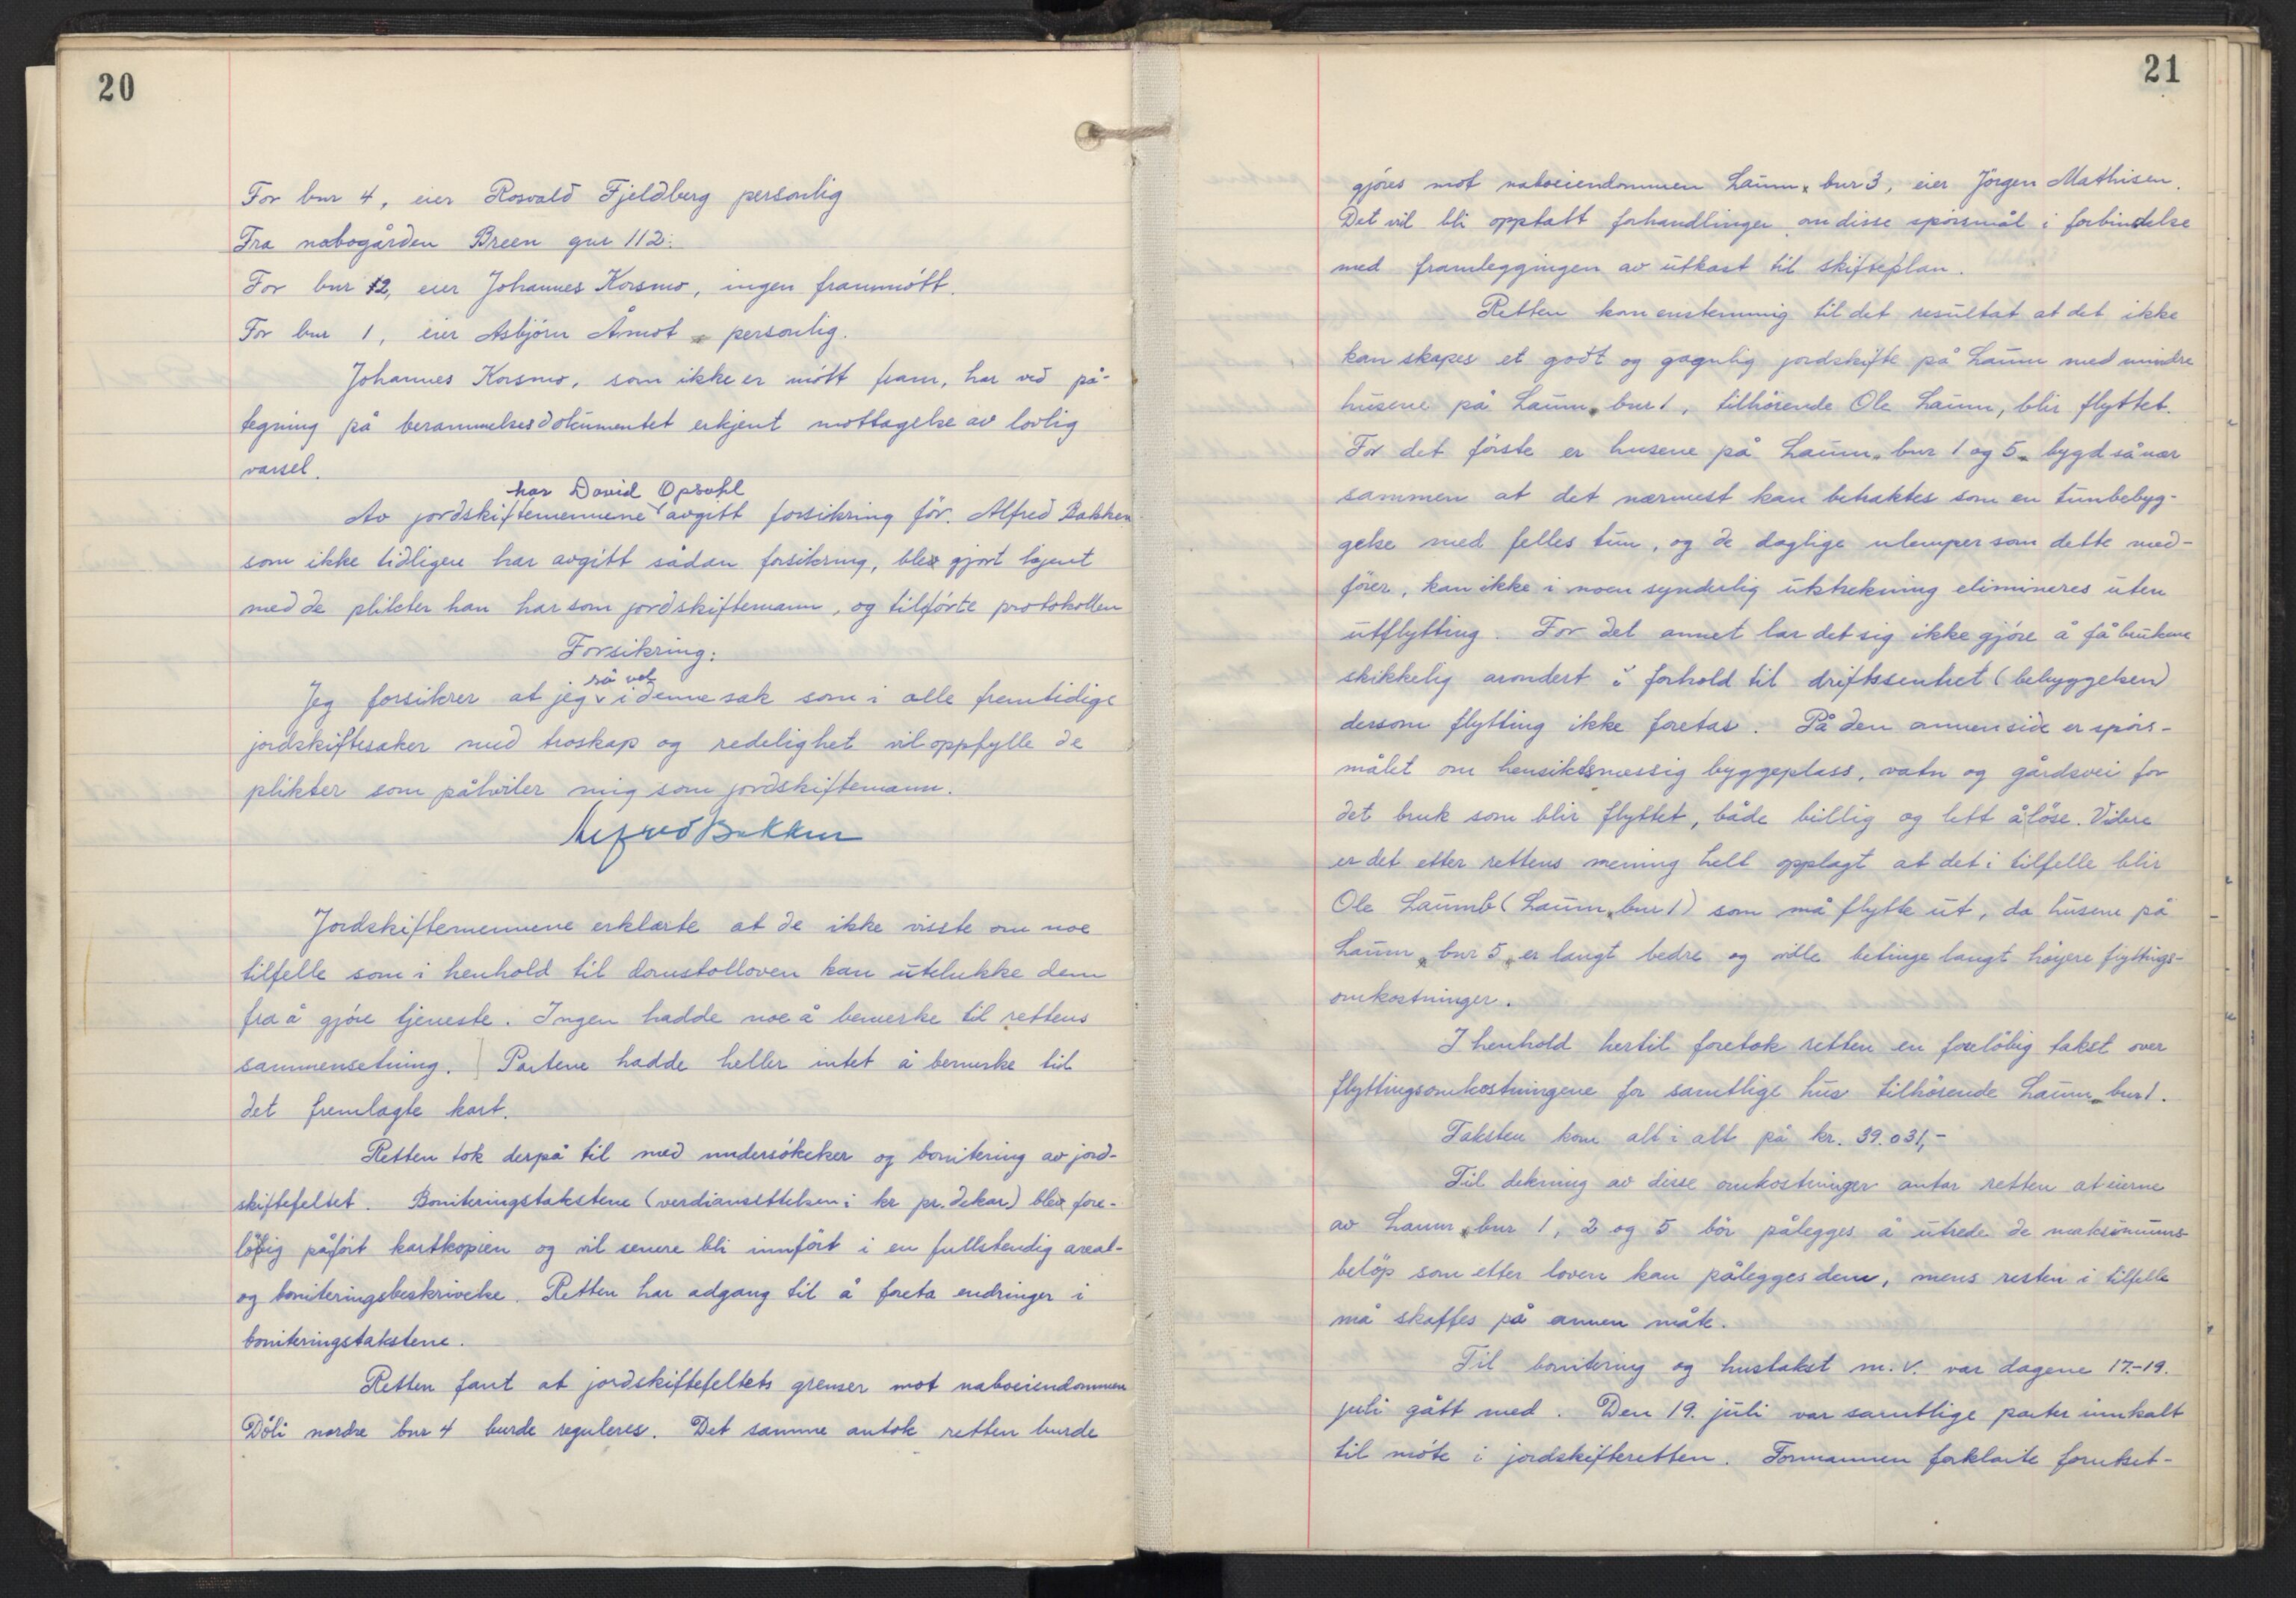 20
For bnr 4, eier Rosvald Fjeldberg personlig
Fra nabogården Breen gnr 112:
For bnr 12, eier Johannes Korsmo, ingen frammött.
For bnr 1, eier Asbjörn Åmot personlig.
Johannes Korsmo, som ikke er mött fram, har ved på-
tegning på berammelsesdokumentet erkjent mottagelse av lovlig
varsel.
har David Opsahl
Av jordskiftemennene avgitt forsikring för. Alfred Bakken
som ikke tidligere har avgitt sådan forsikring, blev gjort kjent
med de plikter han har som jordskiftemann, og tilförte protokollen
Forsikring:
så vel
Jeg forsikrer at jeg i denne sak som i alle fremtidige
jordskiftesaker med troskap og redelighet vil oppfylle de
plikter som påhviler mig som jordskiftemann.
Alfred Bakken
Jordskiftemennene erklærte at de ikke visste om noe
tilfelle som i henhold til domstolloven kan utelukke dem
fra å gjöre tjeneste. Ingen hadde noe å bemerke til rettens
sammensetning. Partene hadde heller intet å bemerke til
det fremlagte kart.
Retten tok derpå til med undersökelser og bonitering av jord-
skiftefeltet. Boniteringstakstene (verdiansettelsen i kr pr. dekar) blev fore-
löbig påfört kartkopien og vil senere bli innfört i en fullstendig areal-
og boniteringsbeskrivelse. Retten har adgang til å foreta endringer i
boniteringstakstene.
Retten fant at jordskiftefeltets grenser mot naboeiendommen
Döli nordre bnr 4 burde reguleres. Det samme antok retten burde
21
gjöres mot naboeiendommen Laum bnr 3, eier Jörgen Mathisen.
Det vil bli opptatt forhandlinger om disse spörsmål i forbindelse
med framleggingen av utkast til skifteplan.
Retten kom enstemmig til det resultat at det ikke
kan skapes et godt og gagnlig jordskifte på Laum med mindre
husene på Laum bnr 1, tilhörende Ole Laum, blir flyttet.
For det förste er husene på Laum bnr 1 og 5 bygd så nær
sammen at det nærmest kan betraktes som en tunbebyg-
gelse med felles tun, og de daglige ulemper som dette med-
förer, kan ikke i noen synderlig utstrekning elimineres uten
utflytting. For det annet lar det sig ikke gjöre å få brukene
skikkelig arondert i forhold til driftssentret (bebyggelsen)
dersom flytting ikke foretas. På den annen side er spörs-
målet om hensiktsmessig byggeplass, vatn og gårdsvei for
det bruk som blir flyttet, både billig og lett å löse. Videre
er det etter rettens mening helt opplagt at det i tilfelle blir
Ole Laumb (Laum bnr 1) som må flytte ut, da husene på
Laum bnr 5 er langt bedre og ville betinge langt höyere flyttings-
omkostninger.
I henhold hertil foretok retten en forelöbig takst over
flyttingsomkostningene for samtlige hus tilhörende Laum bnr 1.
Taksten kom alt i alt på kr. 39.031,-
Til dekning av disse omkostninger antar retten at eierne
av Laum bnr 1, 2 og 5 bör pålegges å utrede de maksimums-
belöp som etter loven kan pålegges dem, mens resten i tilfelle
må skaffes på annen måte.
Til bonitering og hustakst m.v. var dagene 17.-19.
juli gått med. Den 19. juli var samtlige parter innkalt
til möte i jordskifteretten. Formannen forklarte forutset-